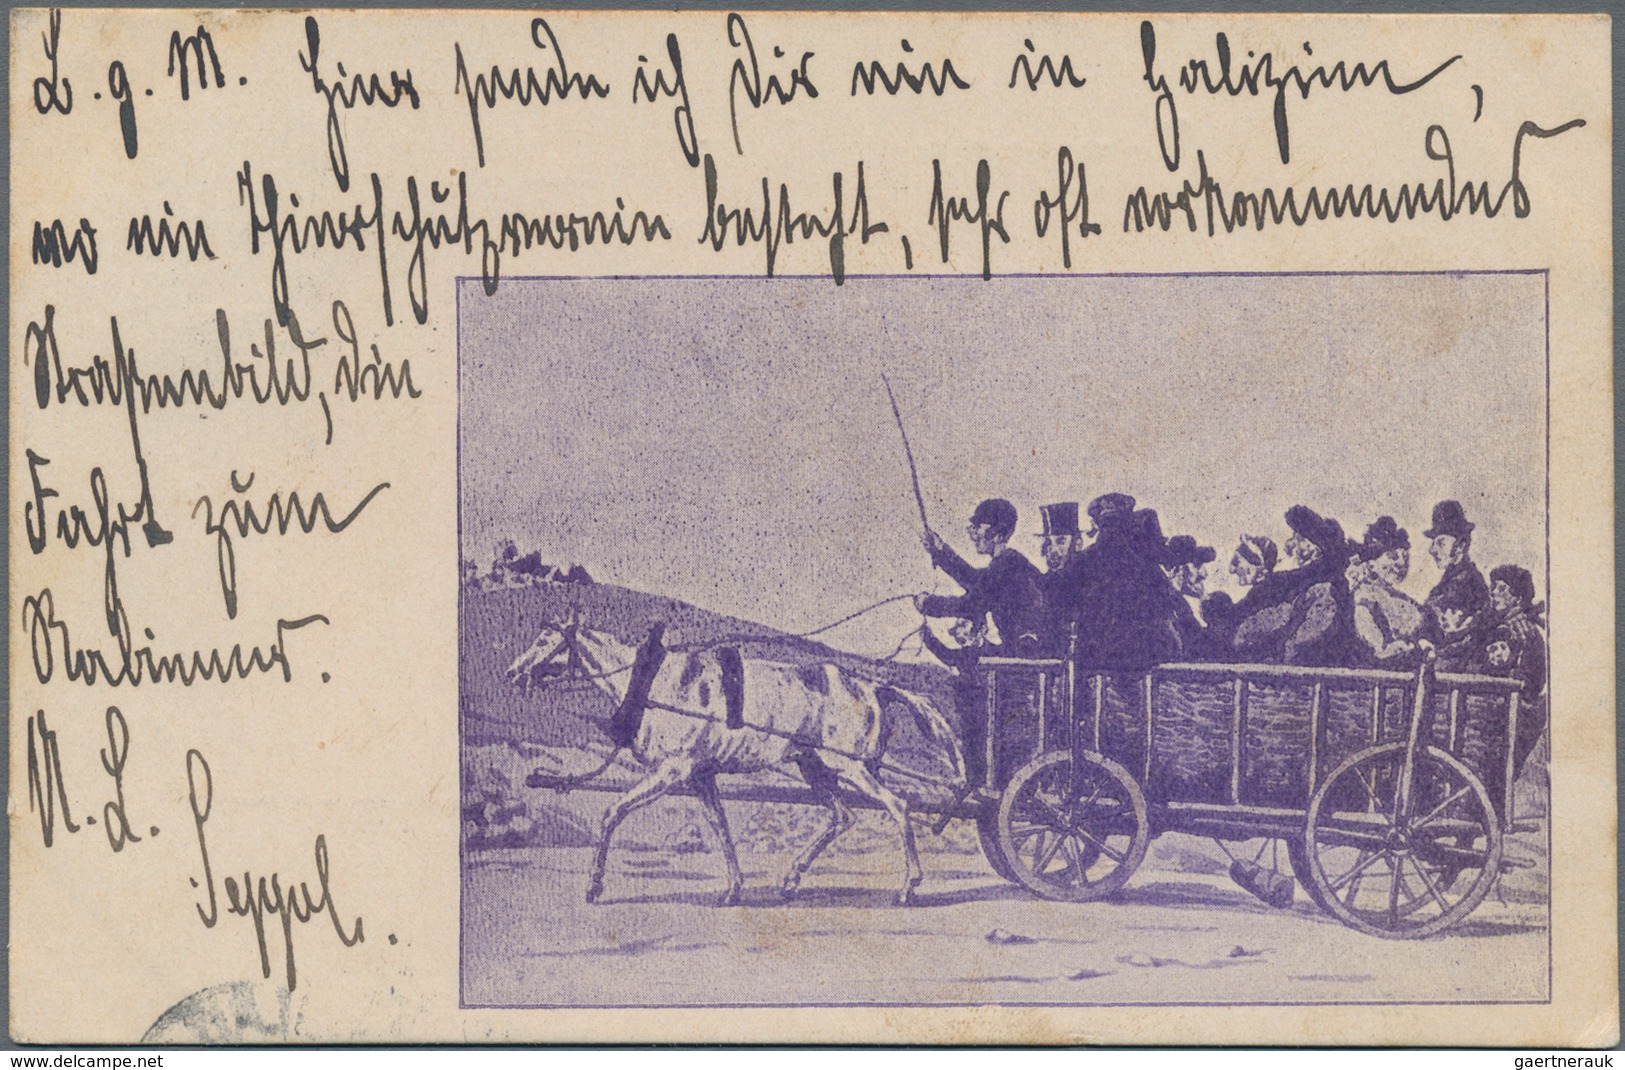 L. g. M. Hier sende ich Dir ein in Galizien,
wo ein Thierschutzverein besteht, sehr oft vorkommendes
Straßenbild, die
Fahrt zum
Rabiner.
N. L.
Seppel.
www.delcampe.net
gaertnerauk